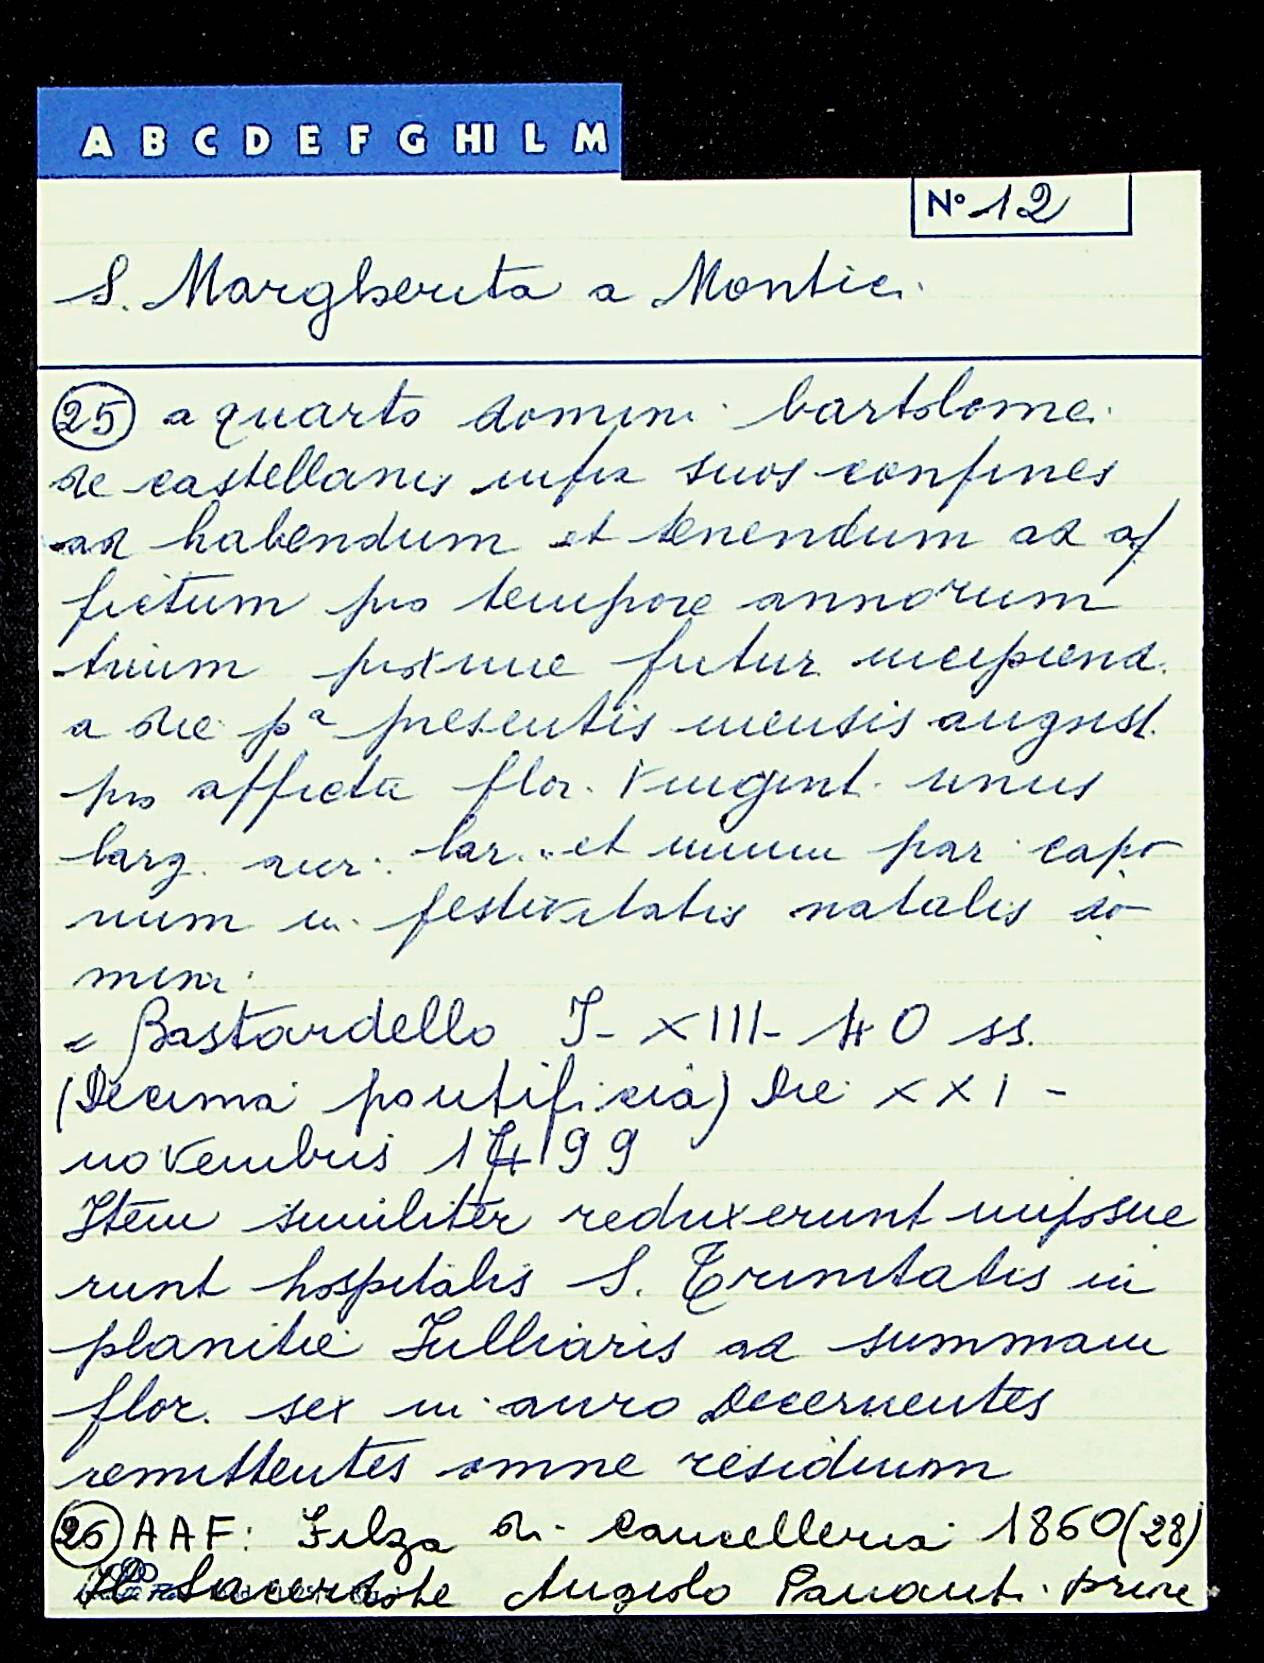 A B C D E F G HI L M
N° 12
S. Margherita a Montici
25 a quarto domini bartolomei
de castellanis infra suos confines
ad habendum et tenendum ad af
fictum pro tempore annorum
trium proxime futur. incipiend.
a die pª presentis mensis august.
pro afficta flor. vingint. unus
larg. aur. lar. et unum par capo
num in festivitatis natalis do
mini
= Bastardello I - XIII - 40 ss.
(Decima pontificia) Die XXI -
novembris 1499
Item similiter reduxerunt imposue
runt hospitalis S. Trinitatis in
planitie Julliaris ad summam
flor. sex in auro decernentes
remittentes omne residuum
26 AAF: Filza di Cancelleria 1860 (28)
Il Sacerdote Angiolo Pananti priore